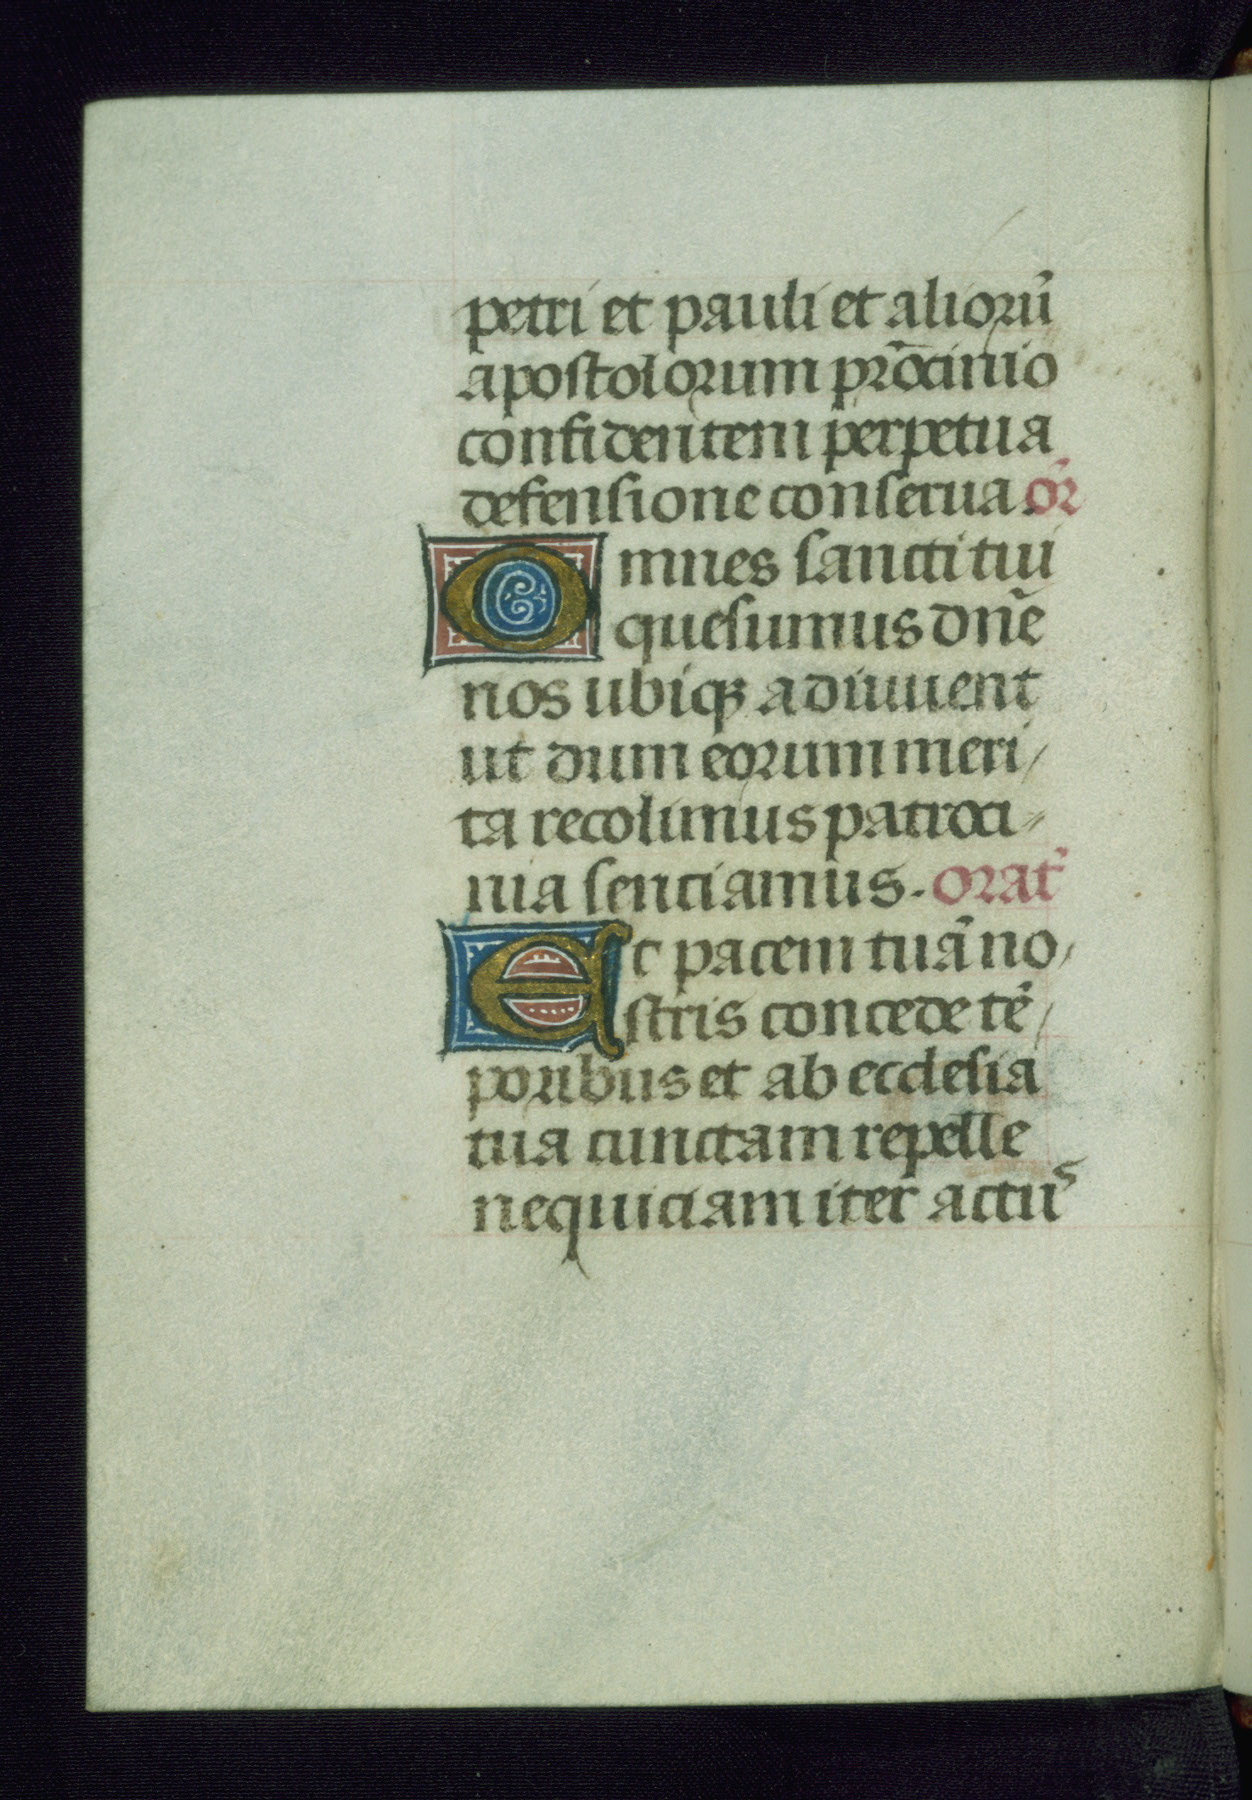 petri et pauli et aliorū
apostolorum pr̄ocinio
confidentem perpetua
defensione conserua or̄
Omnes sancti tui
quesumus dn̄e
nos ubiqꝫ adiuuent
ut dum eorum meri/
ta recolimus patroci//
nia senciamus. orat̄
Et pacem tuā no/
stris concede tē/
poribus et ab ecclesia
tua cunctam repelle
nequiciam iter actus